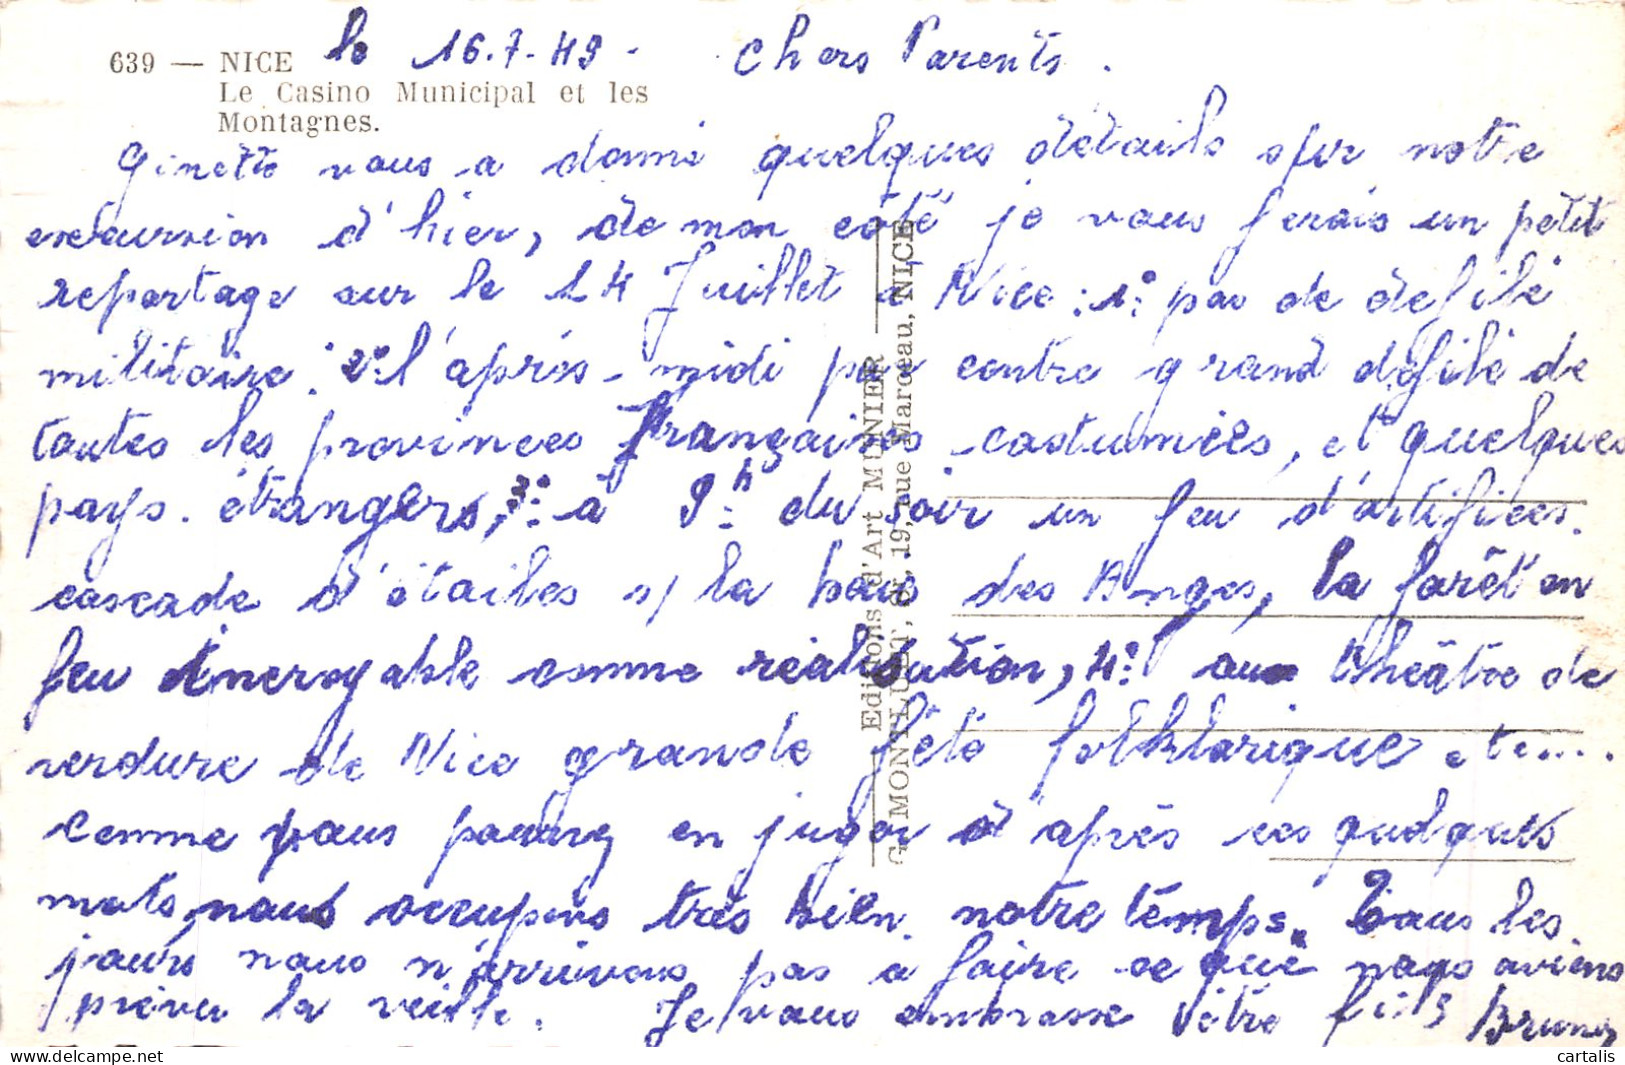 639 — NICE le 16.7-49 - Chers Parents.
Le Casino Municipal et les
Montagnes.
Ginette vous a donné quelques détails sur notre
excursion d'hier, de mon côté je vous ferais un petit
reportage sur le 14 Juillet à Nice : 1° pas de défilé
militaire. 2° l'après-midi par contre grand défilé de
toutes les provinces françaises costumées, et quelques
pays étrangers, 3° à 9h du soir un feu d'artifices.
cascade d'étoiles s/ la baie des Anges, la forêt en
feu incroyable comme réalisation, 4° au théâtre de
verdure de Nice grande fête folklorique etc....
comme vous pouvez en juger d'après ces quelques
mots, nous occupons très bien notre temps. Tous les
jours nous n'arrivons pas à faire ce que nous avions
prévu la veille. Je vous embrasse Votre fils Bruno
Editions d'Art MUNIER
G. MONTLUET, 19, rue Marceau, NICE
cartalis